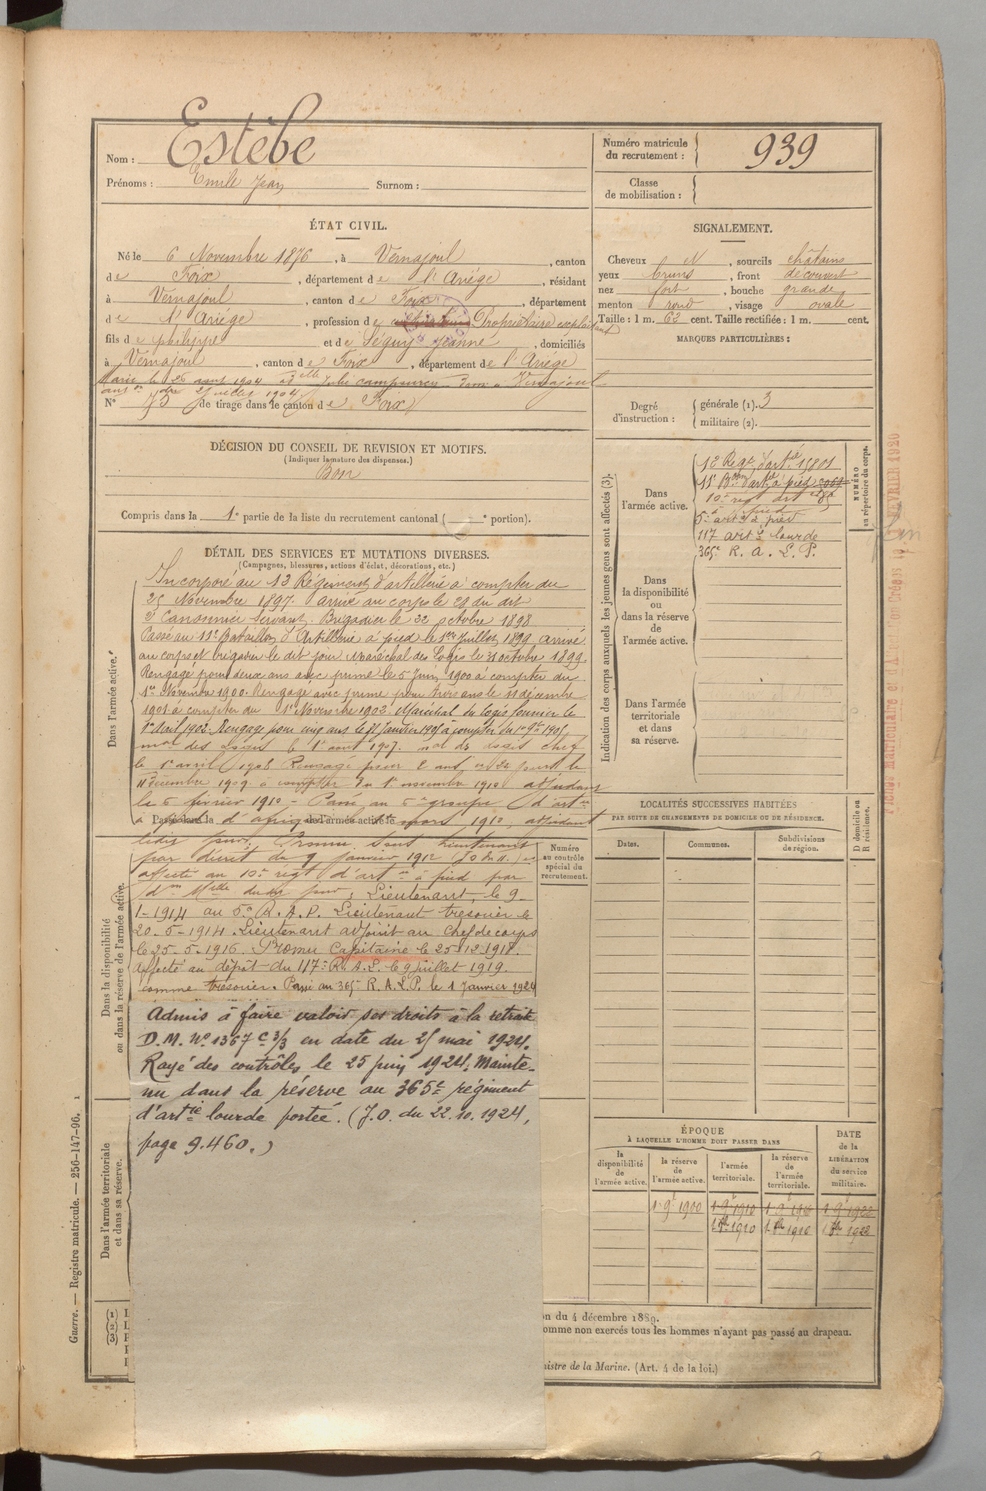 Nom : Estèbe
Prénoms : Emile Jean Surnom :
Numéro matricule du recrutement : 939
Classe de mobilisation :
ÉTAT CIVIL.
Né le 6 Novembre 1876, à Vernajoul, canton
de Foix, département de l'Ariége, résidant
à Vernajoul, canton de Foix, département
de l'Ariége, profession de Propriétaire exploitant
fils de philippe et de Séguy Jeanne, domiciliés
à Vernajoul, canton de Foix, département de l'Ariége
Marié le 26 aout 1904 à Vernajoul
N° 75 de tirage dans le canton de Foix
SIGNALEMENT.
Cheveux N, sourcils châtains
yeux bruns, front découvert
nez fort, bouche grande
menton rond, visage ovale
Taille : 1 m. 63 cent. Taille rectifiée : 1 m. cent.
MARQUES PARTICULIÈRES :
Degré d'instruction : générale (1). 3
militaire (2).
DÉCISION DU CONSEIL DE REVISION ET MOTIFS.
(Indiquer la nature des dispenses.)
Bon
Compris dans la 1e partie de la liste du recrutement cantonal ( e portion).
DÉTAIL DES SERVICES ET MUTATIONS DIVERSES.
(Campagnes, blessures, actions d'éclat, décorations, etc.)
Dans l'armée active.
Incorporé au 13 Régiment d'artillerie à compter du
25 Novembre 1897 arrivé au corps le du dit
2e Canonnier Servant. Brigadier le octobre 1898
Passé au 11e bataillon d'Artillerie à pied le 1er Juillet 1899 arrivé
au corps et brigadier le dit jour Maréchal des Logis le 31 octobre 1899.
Rengagé pour deux ans avec prime le 5 Juin 1900 à compter du
1er Novembre 1900. Rengagé avec prime pour trois ans le 11 décembre
1901 à compter du 1er Novembre 1902. Maréchal des Logis fourrier le
1er Avril 1902. Rengagé pour cinq ans le 21 Janvier 1905 à compter du 1er 9bre 1905
mal des logis le 1er aout 1907. mal des logis chef
le 1er avril 1908 Rengagé pour 2 ans
11 décembre 1909 à compter du 1er novembre 1910 adjudant
le 6 février 1910 - Passé au 6e groupe d'artie
à pied d'afrique le mars 1912, adjudant
ledit jour. Promu Sous lieutenant
par décret du 9 janvier 1912
affecté au 10e régt d'artie à pied par
don Mlle du dit jour; Lieutenant, le 9-
1-1914 au 5e R.A.P. Lieutenant trésorier le
20-5-1914. Lieutenant adjoint au chef de corps
le 25-5-1916. Promu Capitaine le 25-12-1918.
Affecté au dépôt du 117e R.A.L. le 9 juillet 1919.
comme trésorier. Passé au 365e R.A.L.P. le 1 Janvier 1924
Admis à faire valoir ses droits à la retraite
D.M. N° 1367 C 3/3 en date du 21 mai 1924.
Rayé des contrôles le 25 juin 1924, Mainte-
nu dans la réserve au 365e régiment
d'artie lourde portée. (J.O. du 22.10.1924,
page 9.460.)
Passé dans la de l'armée active le
Numéro au contrôle spécial du recrutement.
Dans la disponibilité ou dans la réserve de l'armée active.
Dans l'armée territoriale et dans sa réserve.
Indication des corps auxquels les jeunes gens sont affectés (3).
Dans l'armée active.
13 Régt d'artie 15801
11e Bon d'artie à pied
10e régt art
à pied
5e artie à pied
117 artie lourde
365e R. A. L. P.
NUMÉRO au répertoire du corps.
Dans la disponibilité ou dans la réserve de l'armée active.
Dans l'armée territoriale et dans sa réserve.
LOCALITÉS SUCCESSIVES HABITÉES
PAR SUITE DE CHANGEMENTS DE DOMICILE OU DE RÉSIDENCE.
D domicile ou R résidence.
Dates. Communes. Subdivisions de région.
ÉPOQUE
À LAQUELLE L'HOMME DOIT PASSER DANS
la disponibilité de l'armée active.
la réserve de l'armée active.
l'armée territoriale.
la réserve de l'armée territoriale.
DATE de la LIBÉRATION du service militaire.
1 9e 1900 1 9e 1910 1 9e 1916 1 9e 1922
1 8bre 1910 1 8bre 1916 1 8bre 1922
on du 4 décembre 1889.
omme non exercés tous les hommes n'ayant pas passé au drapeau.
nistre de la Marine. (Art. 4 de la loi.)
(1)
(2)
(3)
Guerre. — Registre matricule. — 256-147-96.